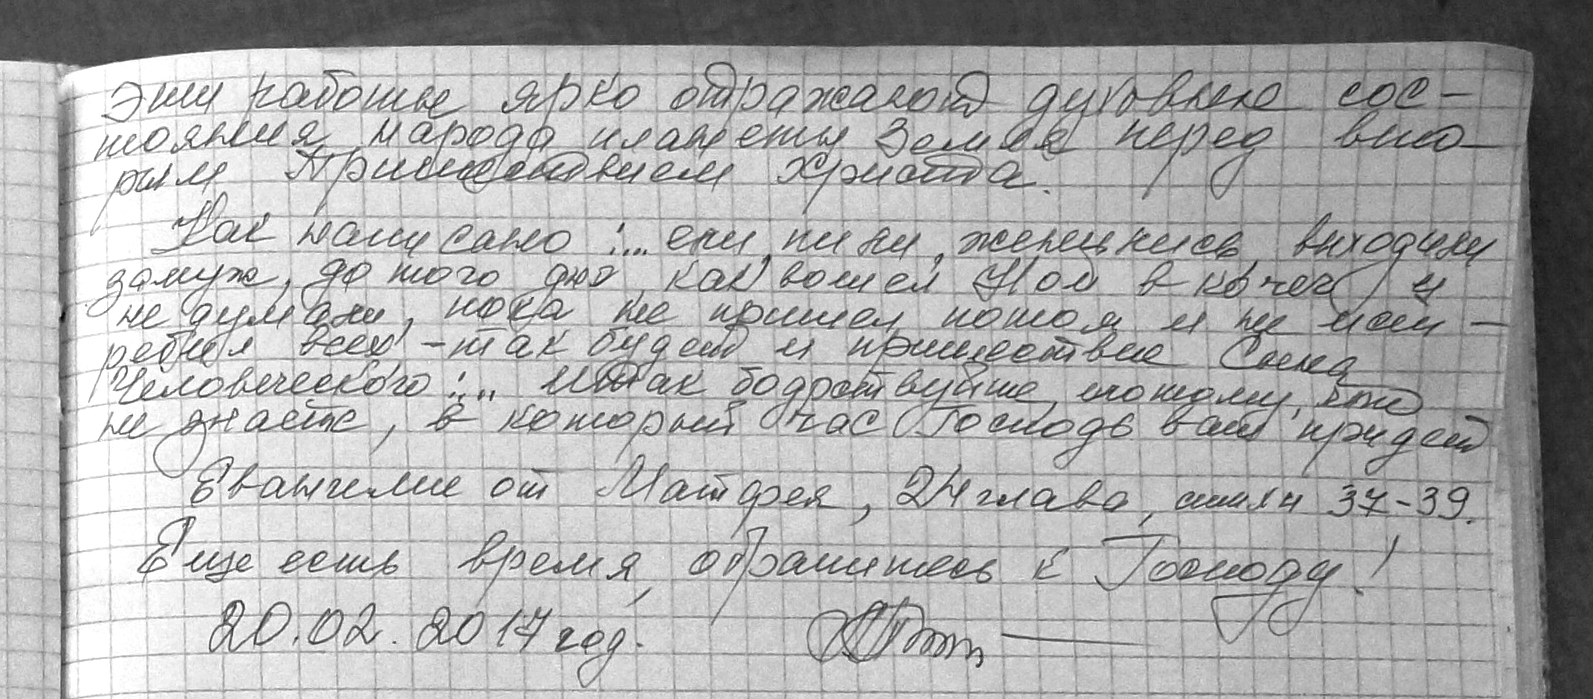 Эти работы ярко отражают духовные сос-
тояния народа планеты Земля перед вто-
рым Пришествием Христа.
Как написано :... ели, пили, женились, выходили
замуж, до того дня, как вошел Ной в ковчег, и
не думали, пока не пришел потоп и не ист-
ребил всех - так будет и пришествие Сына
Человеческого :... Итак бодрствуйте, потому, что
не знаете, в который час Господь ваш придет
Евангелие от Матфея, 24 глава, стихи 37-39.
Еще есть время, обратитесь к Господу!
20.02.2017 год.